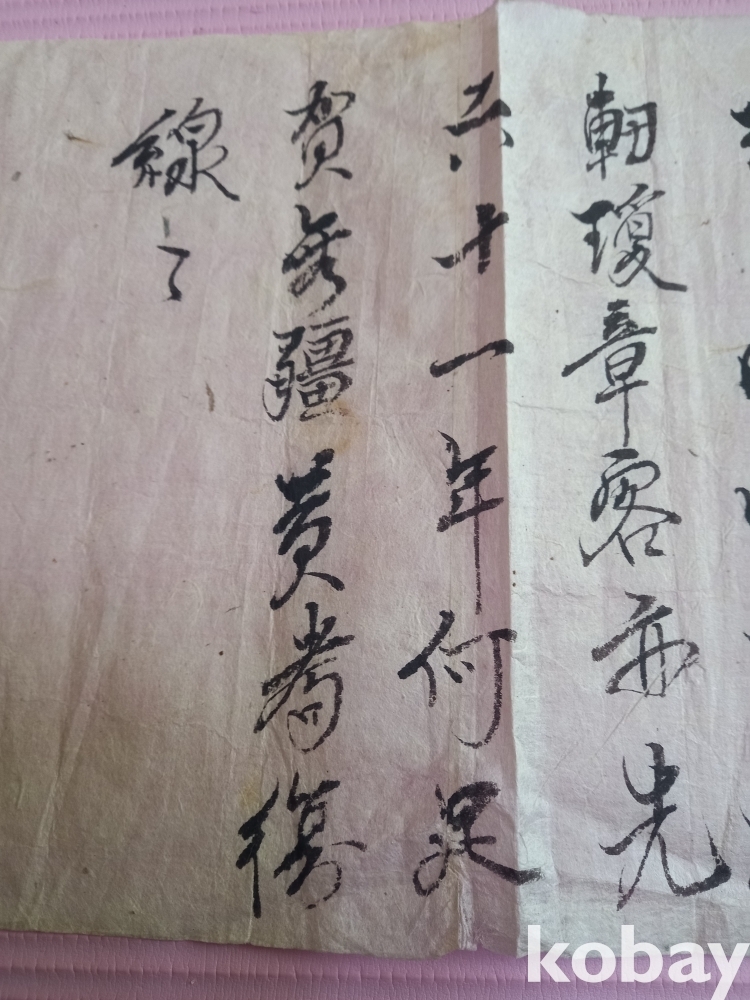 朝瓊章客亦先
六十一年何足
賀無疆黃耇復
線々
kobay